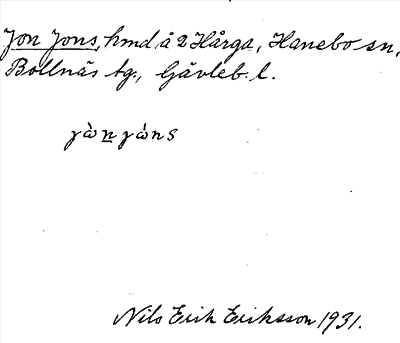 Jon Jons, hmd å 2 Hårga, Hanebo sn,
Bollnäs tg., Gävleb. l.
jὼn jώns
Nils Erik Eriksson 1931.